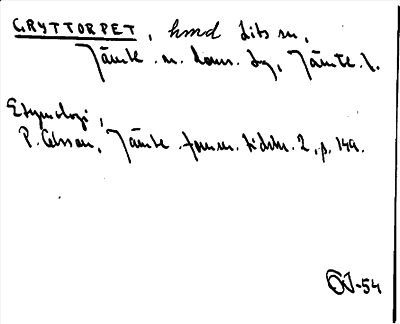 GRYTTORPET, hmd Lits sn,
Jämtl. n. doms. by, Jämtl. l.
Etymologi,
P. Olsson, Jämtl. fornm. tidskr. 2, p. 149.
OJ-54